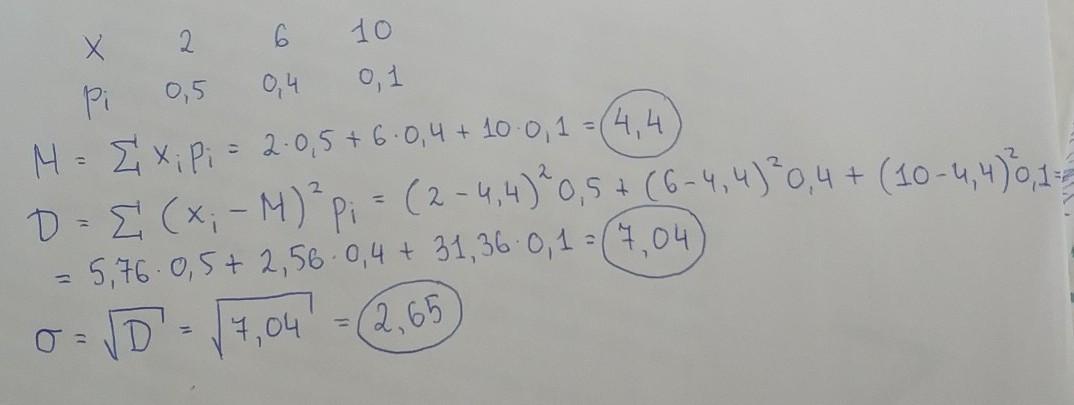 X 2 6 10
Pi 0,5 0,4 0,1
M = Σ xi pi = 2·0,5 + 6·0,4 + 10·0,1 = 4,4
D = Σ (xi - M)² pi = (2 - 4,4)² 0,5 + (6 - 4,4)² 0,4 + (10 - 4,4)² 0,1 =
= 5,76·0,5 + 2,56·0,4 + 31,36·0,1 = 7,04
σ = √D = √7,04 = 2,65